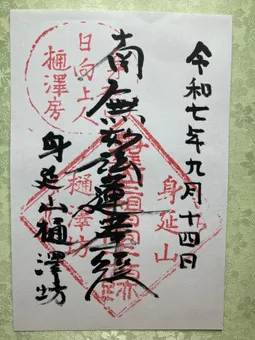 令和七年九月十四日
南無妙法蓮華経
身延山樋澤坊
日向上人
樋澤房
身延山
樋澤坊